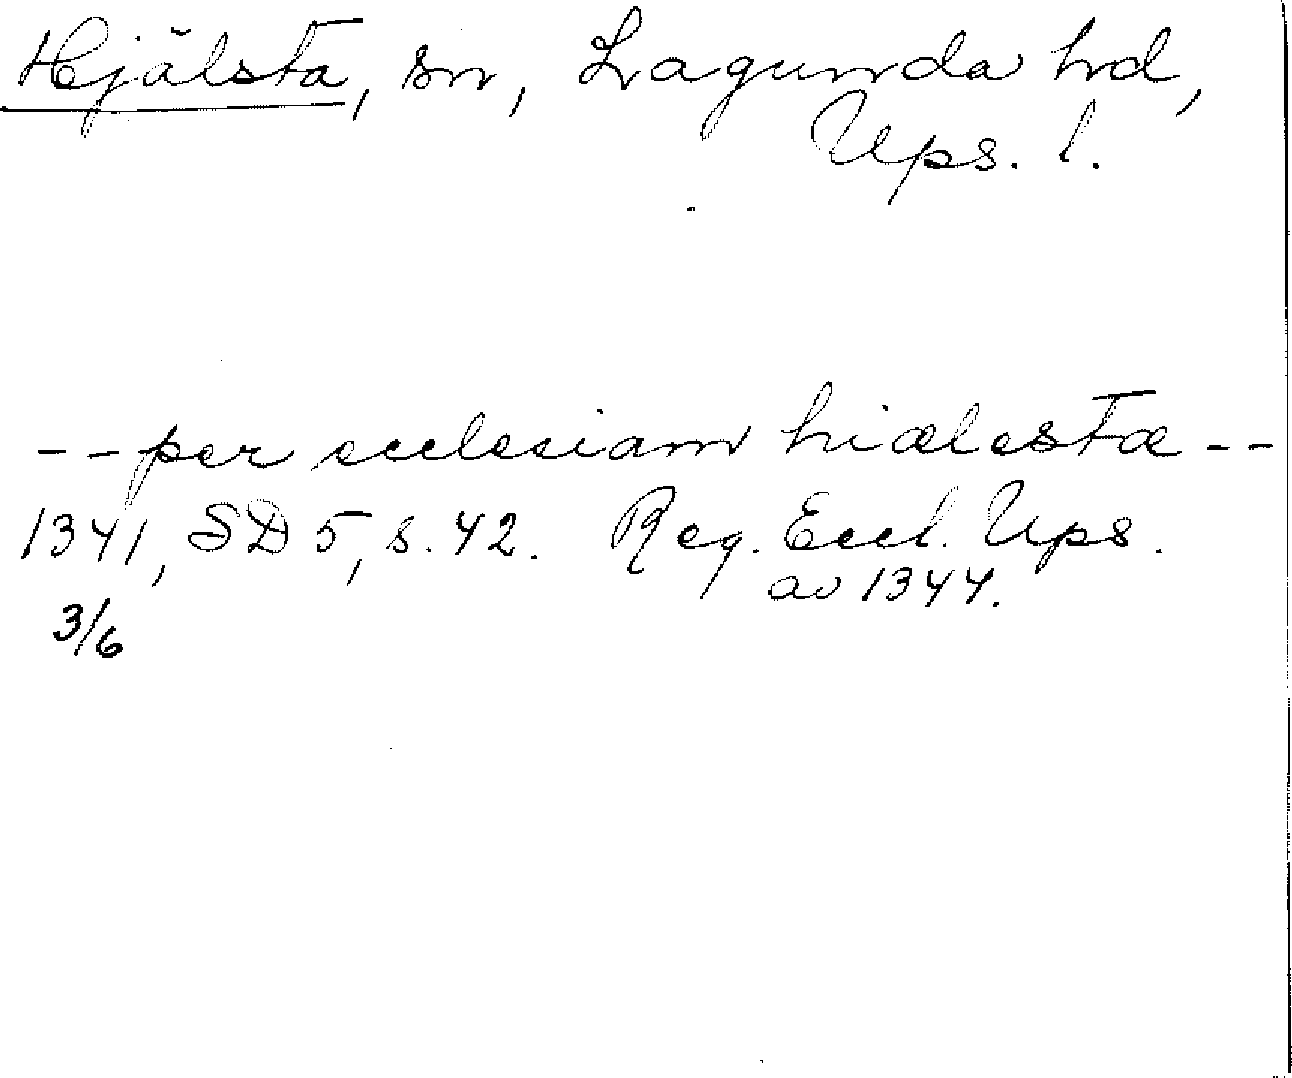 Hjälsta, sn, Lagunda hd,
Ups. l.
-- per ecclesiam hiælestæ --
1341, SD 5, s. 42. Reg. Eccl. Ups.
av 1344.
3/6